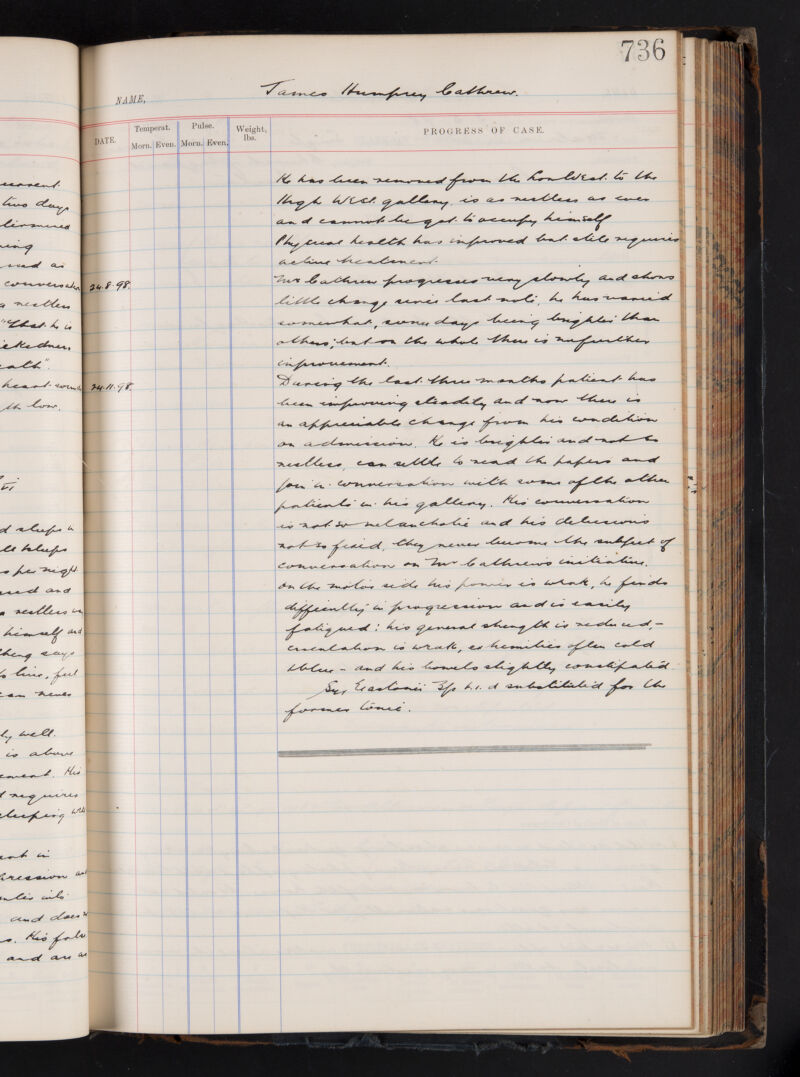 736
NAME, James Humphrey Cathrew.
DATE. Temperat. Pulse. Weight, lbs. PROGRESS OF CASE.
Morn. Even. Morn. Even.
He has been removed from the Low West. to the
High West. gallery, is as restless as ever
and cannot be got to occupy himself
Physical health has improved but still requires
active treatment.
24.8.98. Mr Cathrew progresses very slowly and shows
little change since last note, he has varied
somewhat, some days being brighter than
others; but on the whole there is no further
improvement.
24.11.98. During the last three months patient has
been improving steadily and now there is
an appreciable change from his condition
on admission. He is brighter and not so
restless, can settle to read the papers and
join in conversation with some of the other
patients in his gallery. His conversation
is not so melancholic and his delusions
not so fixed, they never become the subject of
conversation on Mr Cathrew's initiative.
On the motor side his power is weak, he finds
difficulty in progression and is easily
fatigued: his general strength is reduced, -
circulation is weak, extremities often cold
& blue - and his bowels slightly constipated.
Syr. Eastonii ʒjs t.i.d substituted for the
former tonic.
two days
ving
conversation
a restless
"that he is
heart sounds
low.
d sleeps
night
and
restless
himself and
says
live, feel
can never
well.
is above
His
requires
sleeping well
not in
and does
His
and are